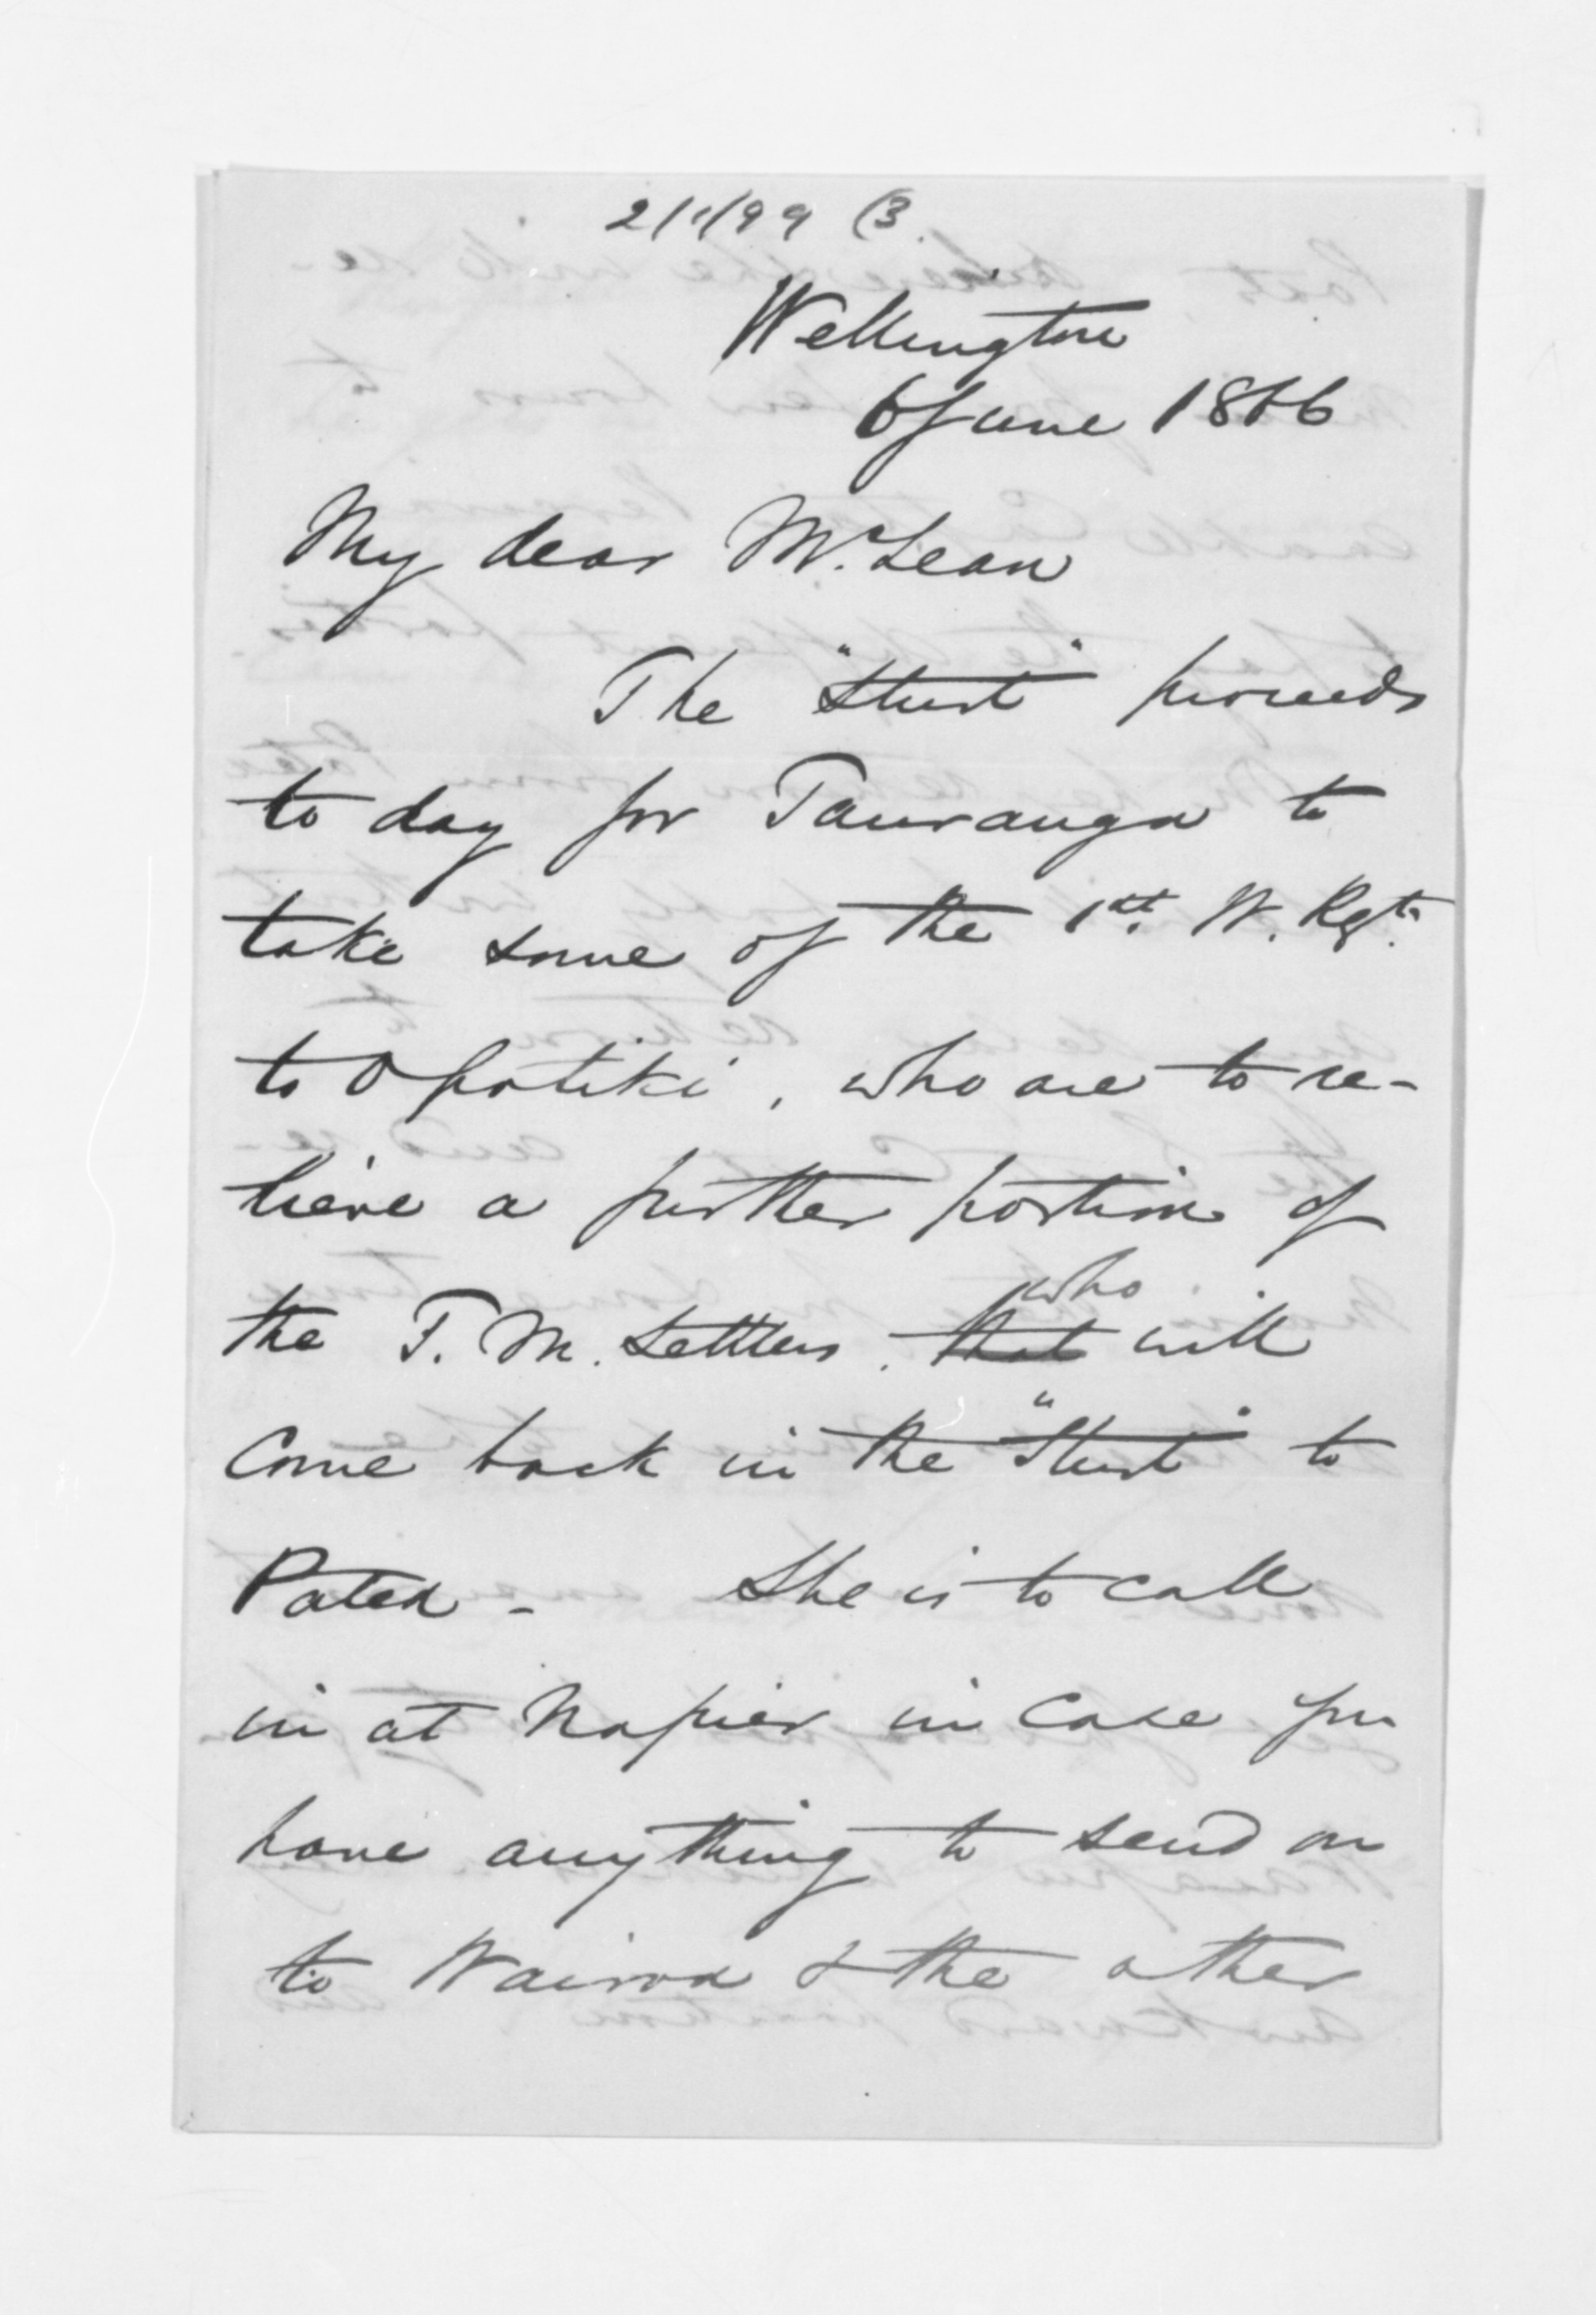 2/1/99 (3.
Wellington
6 June 1866
My dear McLean
The "Sturt" proceeds
to day for Tauranga to
take some of the 1st. W. Rgt.
to Opotiki, who are to re-
lieve a further portion of
the T. M. Settlers. that who will
Come back in the "Sturt" to
Patea - She is to call
in at Napier in Case you
have anything to send on
to Wairoa & the other